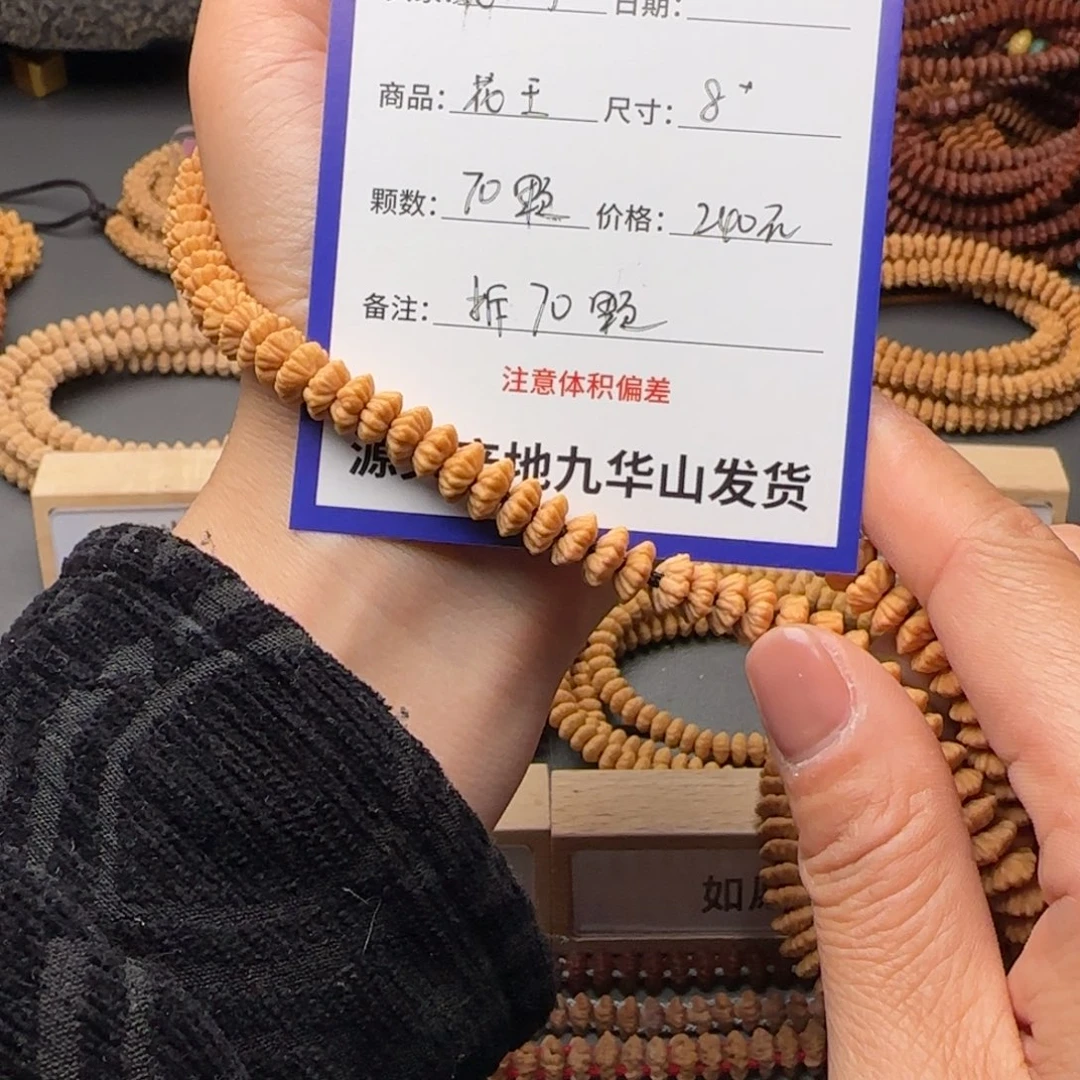 日期:
商品: 花王 尺寸: 8+
颗数: 70颗 价格: 240元
备注: 拆70颗
注意体积偏差
源 产地九华山发货
如